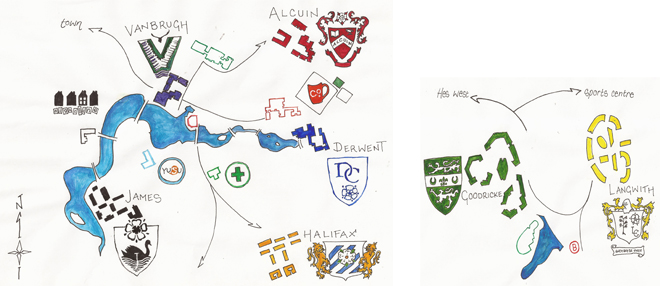 town
VANBRUGH
ALCUIN
ALCUIN
CO
DERWENT
DC
JAMES
HALIFAX
N
Hes west
sports centre
GOODRICKE
LANGWITH
B